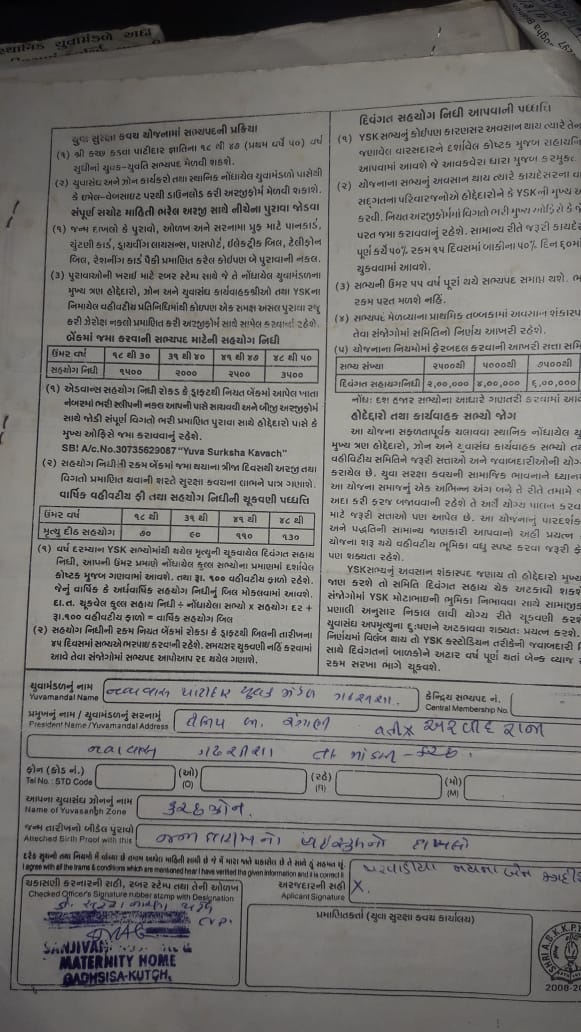 સ્થાનિક યુવામંડળે અદા
યુવા સુરક્ષા કવચ યોજનામાં સભ્યપદની પ્રક્રિયા
(૧) શ્રી કચ્છ કડવા પાટીદાર જ્ઞાતિના ૧૮ થી ૪૭ (પ્રથમ વર્ષે ૫૦) વર્ષ
સુધીનાં યુવક-યુવતિ સભ્યપદ મેળવી શકશે.
(૨) યુવાસંઘ અને ઝોન કાર્યકરો તથા સ્થાનિક નોંધાયેલ યુવામંડળો પાસેથી
કે ઇમેલ-વેબસાઇટ પરથી ડાઉનલોડ કરી અરજીફોર્મ મેળવી શકાશે.
સંપૂર્ણ સચોટ માહિતી ભરેલ અરજી સાથે નીચેના પુરાવા જોડવા
(૧) જન્મ દાખલો કે પુરાવો, ઓળખ અને સરનામા પ્રુફ માટે પાનકાર્ડ,
ચુંટણી કાર્ડ, ડ્રાયવીંગ લાયસન્સ, પાસપોર્ટ, ઇલેક્ટ્રીક બિલ, ટેલીફોન
બિલ, રેશનીંગ કાર્ડ પૈકી પ્રમાણિત કરેલ કોઇપણ બે પુરાવાની નકલ.
(૩) પુરાવાઓની ખરાઇ માટે રબર સ્ટેમ્પ સાથે જે તે નોંધાયેલ યુવામંડળના
મુખ્ય ત્રણ હોદ્દેદારો, ઝોન અને યુવાસંઘ કાર્યવાહકશ્રીઓ તથા YSKના
નિમાયેલ વહીવટીય પ્રતિનિધિમાંથી કોઇપણ એક સમક્ષ અસલ પુરાવા રજુ
કરી ઝેરોક્ષ નકલો પ્રમાણિત કરી અરજીફોર્મ સાથે સામેલ કરવાનાં રહેશે.
બેંકમાં જમા કરવાની સભ્યપદ માટેની સહયોગ નિધી
ઉંમર વર્ષ ૧૮ થી ૩૦ ૩૧ થી ૪૦ ૪૧ થી ૪૭ ૪૮ થી ૫૦
સહયોગ નિધી ૧૫૦૦ ૨૦૦૦ ૨૫૦૦ ૩૫૦૦
(૧) એડવાન્સ સહયોગ નિધી રોકડ કે ડ્રાફ્ટથી નિયત બેંકમાં આપેલ ખાતા
નંબરમાં ભરી સ્લીપની નકલ આપની પાસે સાચવવી અને બીજી અરજીફોર્મ
સાથે જોડી સંપૂર્ણ વિગતો ભરી પ્રમાણિત પુરાવા સાથે હોદ્દેદારો પાસે કે
મુખ્ય ઓફિસે જમા કરાવવાનું રહેશે.
SB! A/c.No.30735629087 "Yuva Surksha Kavach"
(૨) સહયોગ નિધીની રકમ બેંકમાં જમા થયાના ત્રીજા દિવસથી અરજી તથા
વિગતો પ્રમાણિત થવાની શરતે સુરક્ષા કવચના લાભને પાત્ર ગણાશે.
વાર્ષિક વહીવટીય ફી તથા સહયોગ નિધિની ચૂકવણી પધ્ધતિ
ઉંમર વર્ષ ૧૮ થી ૩૧ થી ૪૧ થી ૪૮ થી
મૃત્યુ દીઠ સહયોગ ૭૦ ૯૦ ૧૧૦ ૧૩૦
(૧) વર્ષ દરમ્યાન YSK સભ્યોમાંથી થયેલ મૃત્યુની ચૂકવાયેલ દિવંગત સહાય
નિધી, આપની ઉંમર પ્રમાણે નોંધાયેલ કુલ સભ્યોના પ્રમાણમાં દર્શાવેલ
કોષ્ટક મુજબ ગણવામાં આવશે. તથા રૂા. ૧૦૦ વહીવટીય ફાળો રહેશે.
જેનું વાર્ષિક કે અર્ધવાર્ષિક સહયોગ નિધીનું બિલ મોકલવામાં આવશે.
દા.ત. ચૂકવેલ કુલ સહાય નિધી ÷ નોંધાયેલા સભ્યો x સહયોગ દર +
રૂા.૧૦૦ વહીવટીય ફાળો = વાર્ષિક સહયોગ બિલ
(૨) સહયોગ નિધીની રકમ નિયત બેંકમાં રોકડા કે ડ્રાફ્ટથી બિલની તારીખના
૪૫ દિવસમાં સભ્યએ ભરપાઇ કરવાની રહેશે. સમયસર ચુકવણી નહિં કરવામાં
આવે તેવા સંજોગોમાં સભ્યપદ આપોઆપ રદ થયેલ ગણાશે.
દિવંગત સહયોગ નિધી આપવાની પધ્ધતિ
(૧) YSK સભ્યનું કોઇપણ કારણસર અવસાન થાય ત્યારે તેના
જણાવેલ વારસદારને દર્શાવેલ કોષ્ટક મુજબ સહાયનિ
આપવામાં આવશે જે આવકવેરા ધારા મુજબ કરમુક્ત
(૨) યોજનાના સભ્યનું અવસાન થાય ત્યારે કાયદેસરના વા
સદ્‌ગતના પરિવારજનોએ હોદ્દેદારોને કે YSKની મુખ્ય અ
કરવી. નિયત અરજીફોર્મમાં વિગતો ભરી મુખ્ય ઓફિસે કે જે
પરત જમા કરાવવાનું રહેશે. સામાન્ય રીતે જરૂરી કાયદે
પૂર્ણ કર્યે ૫૦% રકમ ૧૫ દિવસમાં બાકીના ૫૦% દિન ૬૦મ
ચુકવવામાં આવશે.
(૩) સભ્યની ઉંમર ૫૫ વર્ષ પૂરાં થયે સભ્યપદ સમાપ્ત થશે. ભ
રકમ પરત મળશે નહિં.
(૪) સભ્યપદ મેળવ્યાના પ્રાથમિક તબક્કામાં અવસાન શંકાસ્પ
તેવા સંજોગોમાં સમિતિનો નિર્ણય આખરી રહેશે.
(૫) યોજનાના નિયમોમાં ફેરબદલ કરવાની આખરી સત્તા સમિ
સભ્ય સંખ્યા ૨૫૦૦થી ૫૦૦૦થી ૭૫૦૦થી
દિવંગત સહાયનિધી ૨,૦૦,૦૦૦ ૪,૦૦,૦૦૦ ૬,૦૦,૦૦૦
નોંધ: દશ હજાર સભ્યોના આધારે ગણતરી કરવામાં આવ
હોદ્દેદારો તથા કાર્યવાહક સભ્યો જોગ
આ યોજના સફળતાપૂર્વક ચલાવવા સ્થાનિક નોંધાયેલ યુ
મુખ્ય ત્રણ હોદ્દેદારો, ઝોન અને યુવાસંઘ કાર્યવાહક સભ્યો ત
વહીવટીય સમિતિને જરૂરી સત્તાઓ અને જવાબદારીની યોગ
કરાયેલ છે. યુવા સુરક્ષા કવચની સામાજિક ભાવનાને ધ્યાન
આ યોજના સમાજનું એક અભિન્ન અંગ બને તે રીતે તમામે
અદા કરી ફરજ બજાવવાની રહેશે તે અર્થે યોગ્ય પાલન કરવ
માટે જરૂરી સત્તાઓ પણ આપેલ છે. આ યોજનાનું પારદર્શક
અને પદ્ધતિની સામાન્ય જાણકારી આપવાનો અહીં પ્રયત્ન
યોજના શરૂ થયે વહીવટીય ભૂમિકા વધુ સ્પષ્ટ કરવા જરૂરી ફે
પણ શક્યતા રહેશે.
YKSસભ્યનું અવસાન શંકાસ્પદ જણાય તો હોદ્દેદારો મુખ્ય
જાણ કરશે તો સમિતિ દિવંગત સહાય ચેક અટકાવી શકશે
સંજોગોમાં YSK મોટાભાઇની ભૂમિકા નિભાવવા સાથે સામાજીક
પ્રણાલી અનુસાર નિકાલ લાવી યોગ્ય રીતે ચૂકવણી કરશે
યુવાસંઘ અપમૃત્યુના દુ:ષણને અટકાવવા શક્યત: પ્રયત્ન કરશે.
નિર્ણયમાં વિલંબ થાય તો YSK કસ્ટોડિયન તરીકેની જવાબદારી નિ
સાથે દિવંગતનાં બાળકોને અઢાર વર્ષ પૂર્ણ થતાં બેન્ક વ્યાજ
રકમ સરખા ભાગે ચૂકવશે.
યુવામંડળનું નામ નવાવાસ પાટીદાર યુવક મંડળ ગઢશીશા.
Yuvamandal Name
કેન્દ્રિય સભ્યપદ નં.
Central Membership No.
પ્રમુખનું નામ / યુવામંડળનું સરનામું
President Name / Yuvamandal Address
નવાવાસ ગઢશીશા તા માંડવી - કચ્છ.
ફોન (કોડ નં.) (ઓ) (રહે) (મો)
Tel No.: STD Code (O) (R) (M)
આપના યુવાસંઘ ઝોનનું નામ કચ્છ ઝોન.
Name of Yuvasangh Zone
જન્મ તારીખનો બીડેલ પુરાવો
Atteched Birth Proof with this
દરેક સૂચનો તથા નિયમો મેં વાંચ્યા છે તમામ આપેલ માહિતી સાચી છે જે મારા જાતે ચકાસેલ છે તે સાથે હું સહમત છું.
I agree with all the trams & conditions which are mentioned hear I have verified the given information and it is correct it
ચકાસણી કરનારની સહી, રબર સ્ટેમ્પ તથા તેની ઓળખ
Checked Officer's Signature rubber stamp with Designation
અરજદારની સહી
Aplicant Signature
X.
SANJIVANI
MATERNITY HOME
GADHSISA-KUTCH.
પ્રમાણિતકર્તા (યુવા સુરક્ષા કવચ કાર્યાલય)
SHRI A.B.K.K.P.
2008-20